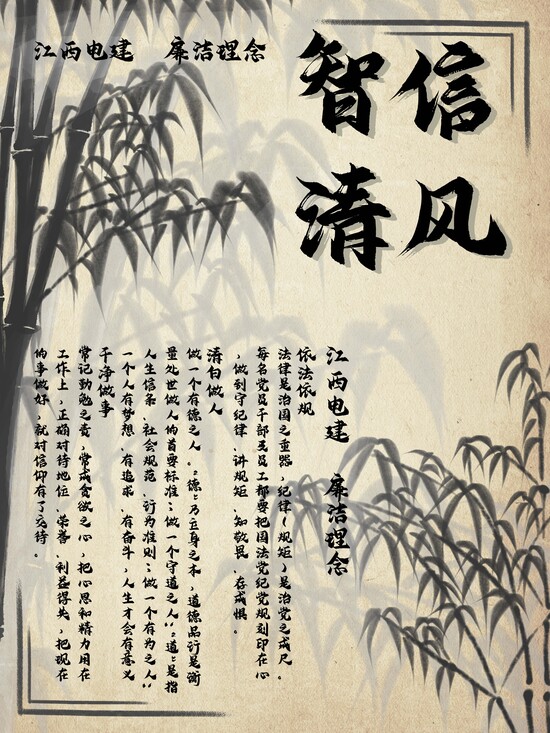 江西电建 廉洁理念
智信
清风
江西电建 廉洁理念
依法依规
法律是治国之重器，纪律（规矩）是治党之戒尺。
每名党员干部及员工都要把国法党纪党规刻印在心
，做到守纪律、讲规矩、知敬畏、存戒惧。
清白做人
做一个有德之人。“德”乃立身之本，道德品行是衡
量处世做人的首要标准；做一个守道之人，“道”是指
人生信条、社会规范、行为准则；做一个有为之人，
一个人有梦想、有追求、有奋斗，人生才会有意义
干净做事
常记勤勉之责，常戒贪欲之心，把心思和精力用在
工作上，正确对待地位、荣誉、利益得失，把现在
的事做好，就对信仰有了交待。